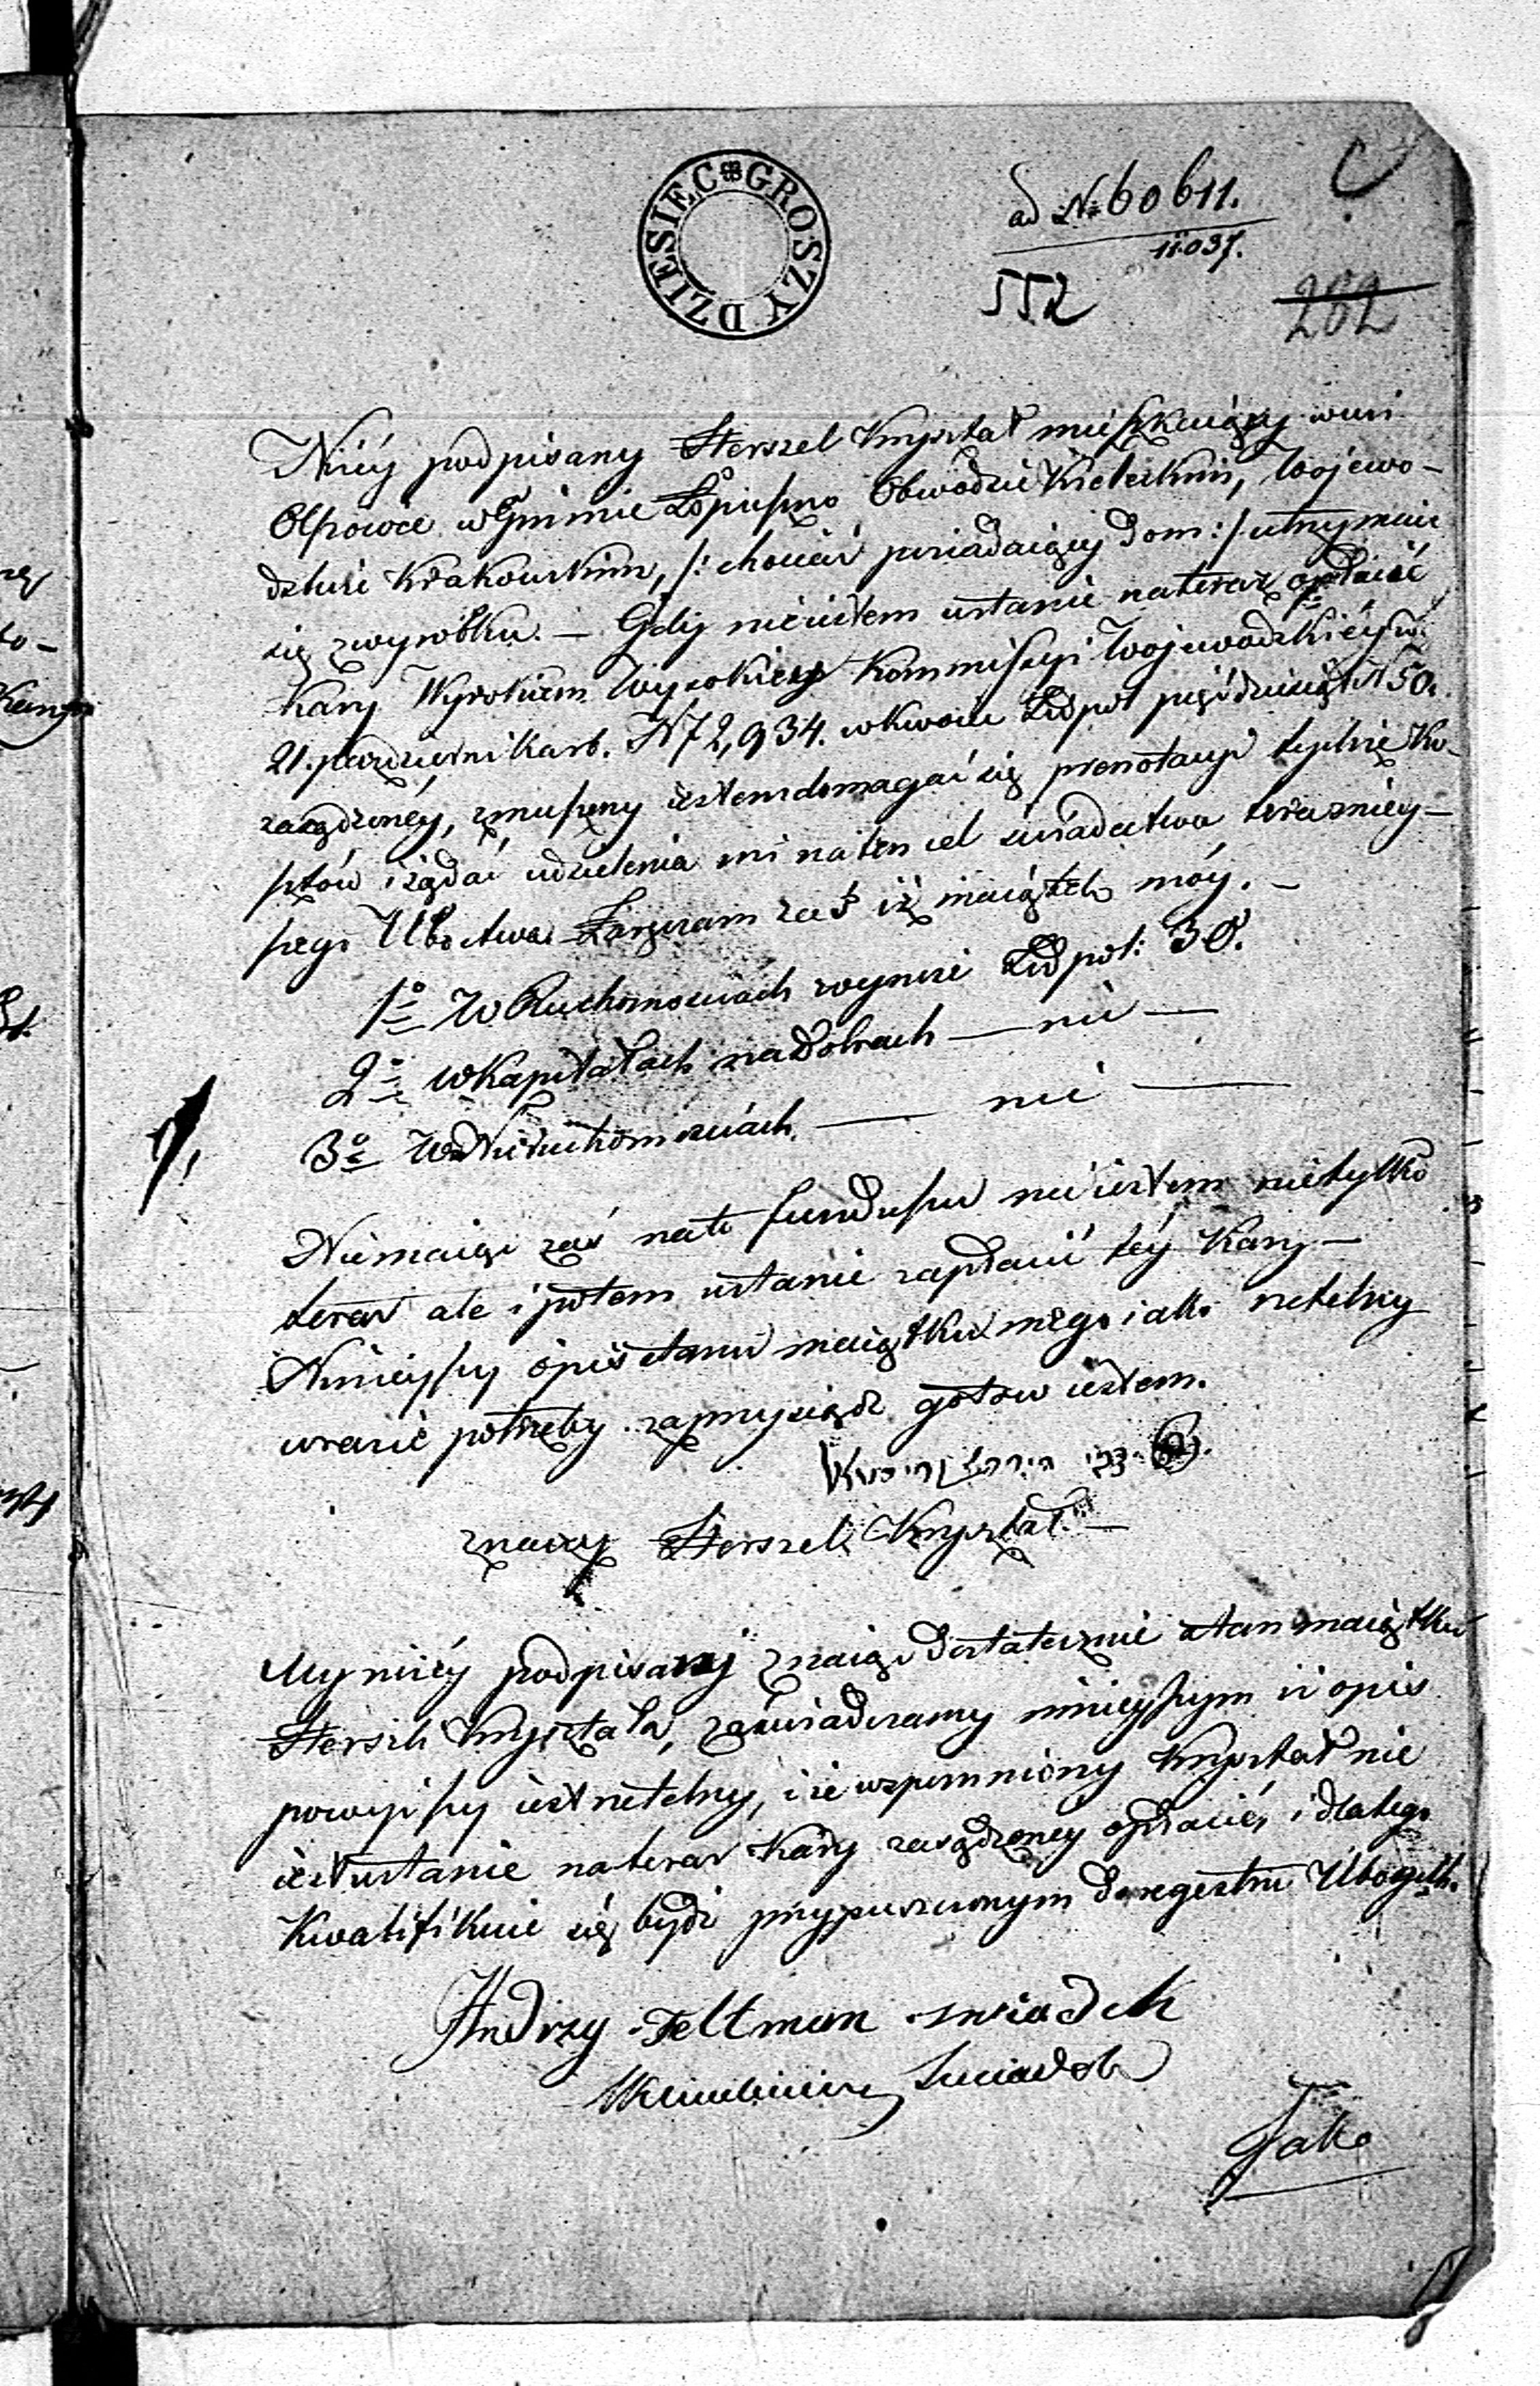 DZIESIEC GROSZY
ad No 60611.
11.037.
552
262
Niżéy podpisany Herszel Kryształ mieszkaiący wsi
Olszowce w Gminie Łopuszno Obwodzie Kieleckim, Wojewo-
dztwie Krakowskim, /: chociaż posiadaiący dom :/ utrzymuie
się z wyrobku. — Gdy nie iestem wstanie na teraz opłacić
Kary Wyrokiem Wysokiey Kommissyi Wojewódzkiéy
21. października rb. N 72,934. w kwocie Złpol pięćdziesiąt N 50.
zasądzonéy, zmuszony iestem domagać się prenotacyi tychże Ko-
sztów i żądać udzielenia mi na ten cel świadectwa teraźniey-
szego Ubóstwa. Zaręczam zaś iż maiątek móy. —
1o W Ruchomościach wynosi Złp pol: 30.
2o w Kapitałach na dobrach — nic —
3o W Nieruchomościach — nic —
Niemaiąc zaś na to funduszu nie iestem nietylko
teraz ale i potem wstanie zapłacić téy Kary —
Ninieyszy opis stanu maiątku mego iako rzetelny
wrazie potrzeby zaprzysiądz gotow iestem.
znaczy Herszel Kryształ. —
My niżéy podpisany znaiąc dostatecznie stan maiątku
Herszli Kryształa, zaświadczamy ninieyszym iż opis
powyższy iest rzetelny, i że wspomniony Kryształ nie
iest wstanie na teraz Kary zasądzoney opłacić, i dlatego
Kwalifikuie się bydź przypuszczonym do regestru Ubogich.
Andrzy Feltman swiadek
Swiadek
Jako